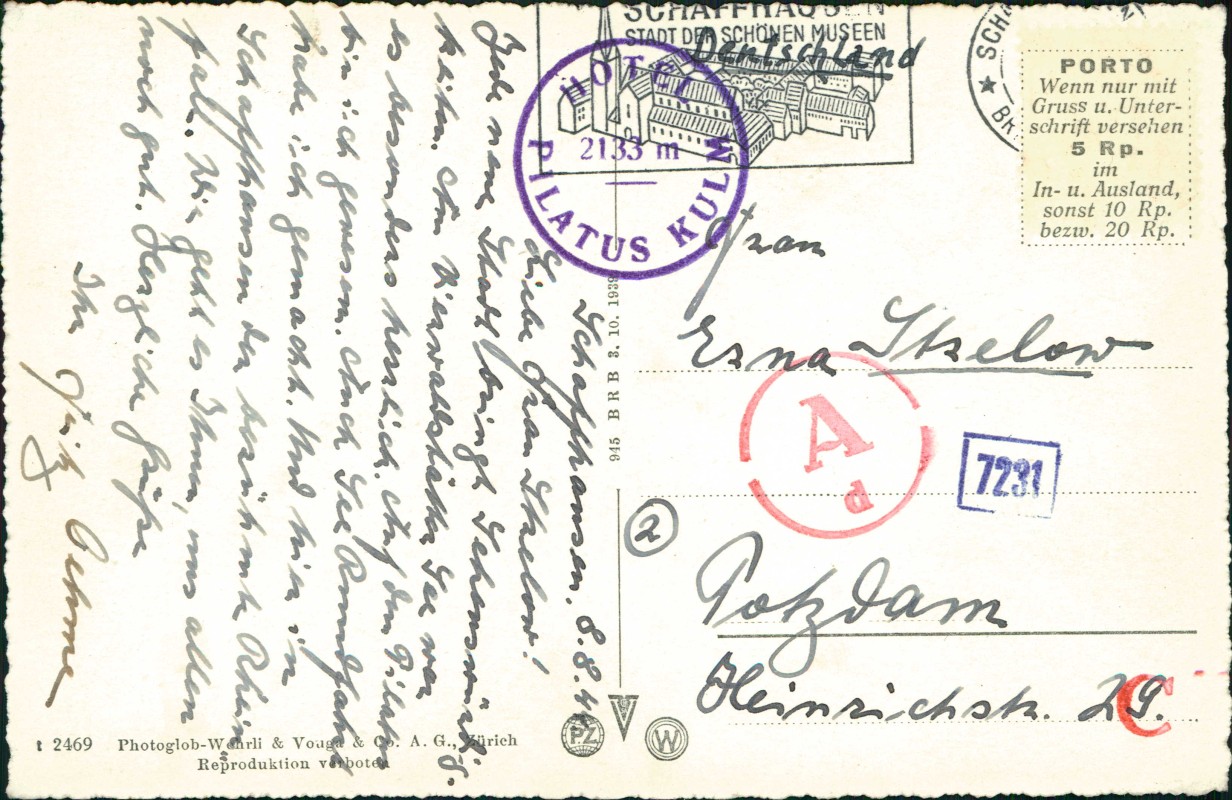 Schaffhausen. 8.8.4
Liebe Frau Strelow!
Jede neue Stadt bringt Sehenswürdig.
keiten. Am Vierwaldstätter See war
es besonders herrlich. Auf dem Pilatus
bin ich gewesen. Auch See Rundfahrt
habe ich gemacht. Und hier in
Schaffhausen der berühmte Rhein
fall. Wie geht es Ihnen, uns allen
noch gut. Herzliche Grüße
Ihr Fritz Oehme
t 2469 Photoglob-Wehrli & Vouga & Co. A. G., Zürich
Reproduktion verboten
945 BRB 3. 10. 1939
PZ
W
HOTEL
2133 m
PILATUS KULM
SCHAFFHAUSEN
STADT DER SCHÖNEN MUSEEN
Deutschland
SCHA
PORTO
Wenn nur mit
Gruss u. Unter-
schrift versehen
5 Rp.
im
In- u. Ausland,
sonst 10 Rp.
bezw. 20 Rp.
Frau
Erna Strelow
A
d
7231
2
Potzdam
Heinrichstr. 29.
C